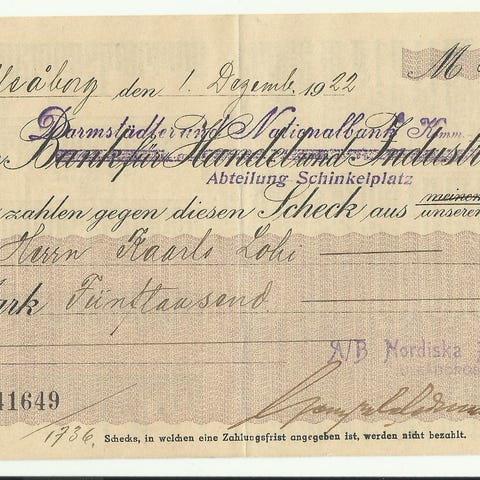 den 1. Dezemb. 1922 M
Darmstädter und Nationalbank Komm.
Bank für Handel und Industri
Abteilung Schinkelplatz
meinem
zahlen gegen diesen Scheck aus unserem
Herrn Kaarlo Lohi
ark Fünftausend
A/B Nordiska
41649
1736.
Schecks, in welchen eine Zahlungsfrist angegeben ist, werden nicht bezahlt.